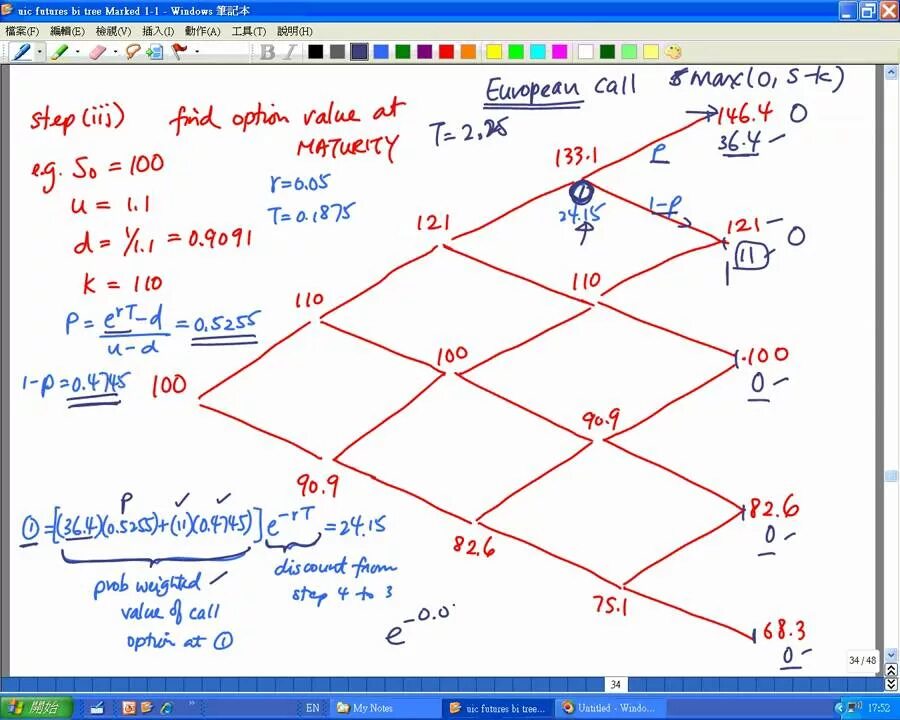 uic futures bi tree Marked 1-1 - Windows 筆記本
檔案(F) 編輯(E) 檢視(V) 插入(I) 動作(A) 工具(T) 說明(H)
B I
European call
max(0, S-K)
step(iii) find option value at
MATURITY
T=2.25
e.g. S₀ = 100
u = 1.1
d = 1/1.1 = 0.9091
K = 110
r=0.05
T=0.1875
P = e^rT - d / u - d = 0.5255
1-P = 0.4745
100
110
90.9
121
100
82.6
133.1
①
24.15
P
1-P
110
90.9
75.1
146.4 0
36.4
121 0
11
100
0
82.6
0
68.3
0
P ✓ ✓
① = [(36.4)(0.5255)+(11)(0.4745)] e^-rT = 24.15
prob weighted
value of call
option at ①
discount from
step 4 to 3
e^-0.0
34 / 48
34
開始
EN
My Notes
uic futures bi tree...
Untitled - Windows...
17:52